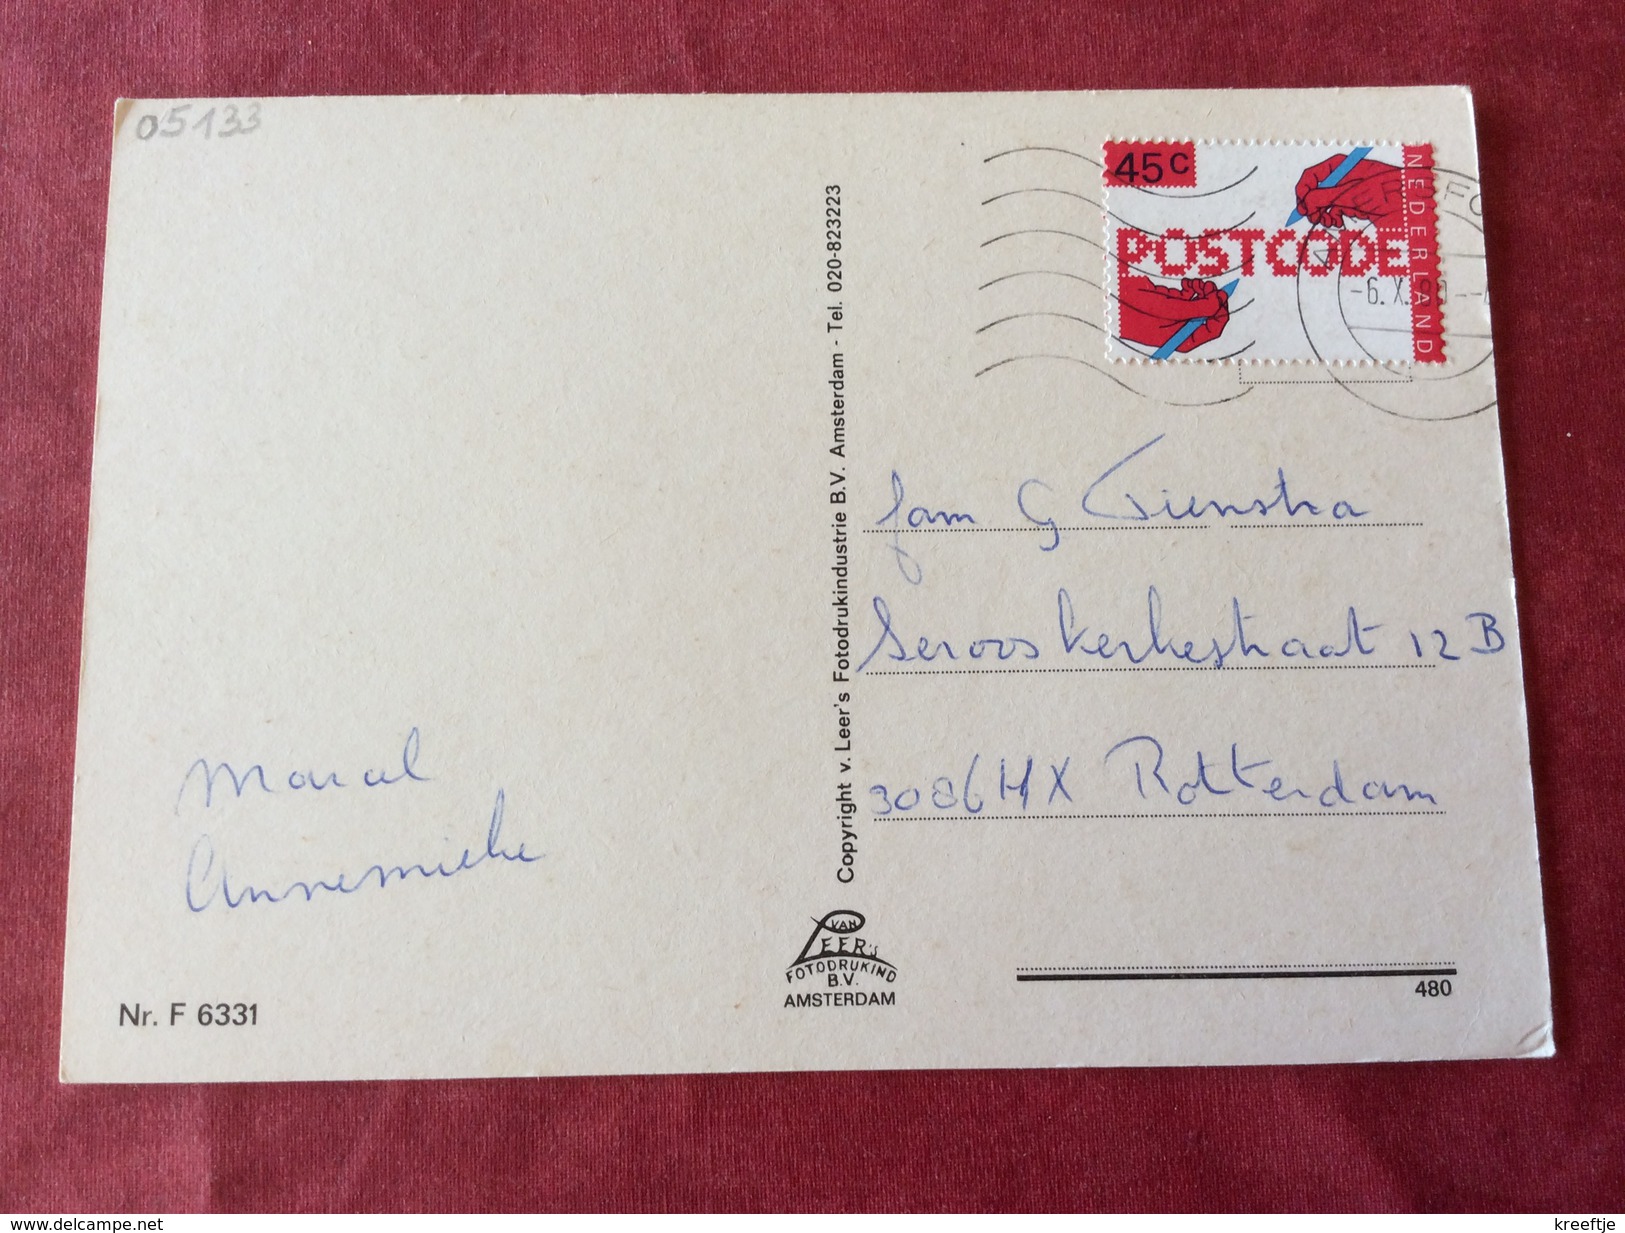 05133
45c
POSTCODE
NEDERLAND
-6.X.
Copyright v. Leer's Fotodrukindustrie B.V. Amsterdam - Tel. 020-823223
fam G Tienstra
Serooskerkestraat 12 B
3086 HX Rotterdam
Marcel
Annemieke
VAN
LEER'S
FOTODRUKIND
B.V.
AMSTERDAM
480
Nr. F 6331
www.delcampe.net
kreeftje